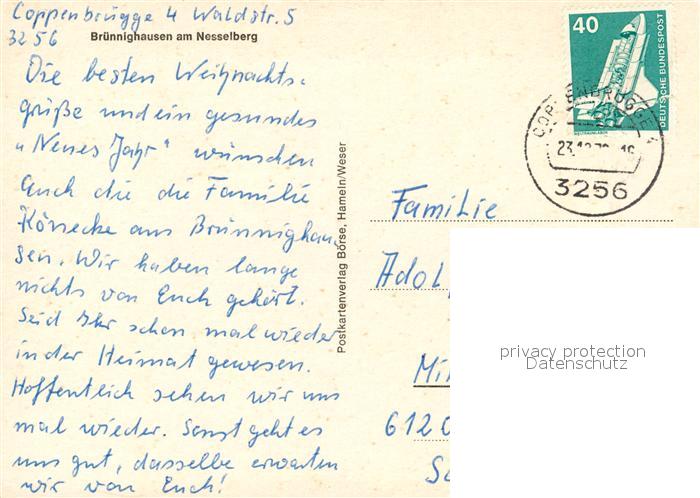 Coppenbrügge 4 Waldstr. 5
3256
Brünnighausen am Nesselberg
Die besten Weihnachts-
grüße und ein gesundes
„Neues Jahr" wünschen
Euch die die Familie
Könecke aus Brünnighau-
sen. Wir haben lange
nichts von Euch gehört.
Seid Ihr schon mal wieder
in der Heimat gewesen.
Hoffentlich sehen wir uns
mal wieder. Sonst geht es
uns gut, dasselbe erwarten
wir von Euch!
Postkartenverlag Börse, Hameln/Weser
40
DEUTSCHE BUNDESPOST
COPPENBRÜGGE 1
3256
Familie
Adol
612
privacy protection
Datenschutz